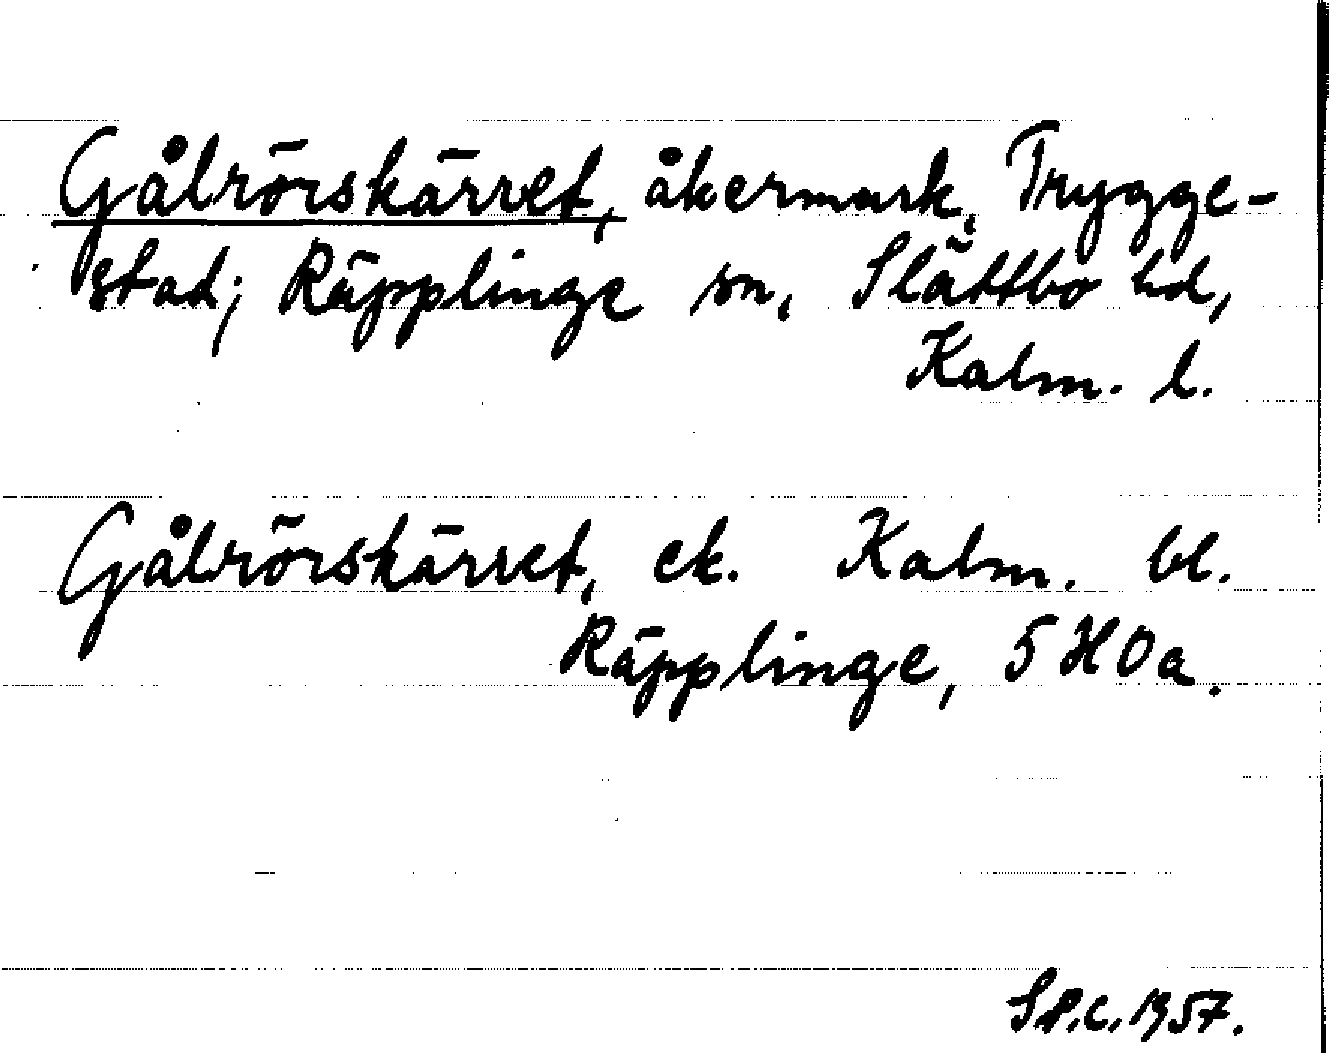 Gålrörskärret, åkermark, Trygge-
stad; Räpplinge sn, Slättbo hd,
Kalm. l.
Gålrörskärret, ek. Kalm. bl.
Räpplinge, 5 H 0 a.
S.P.C. 1957.